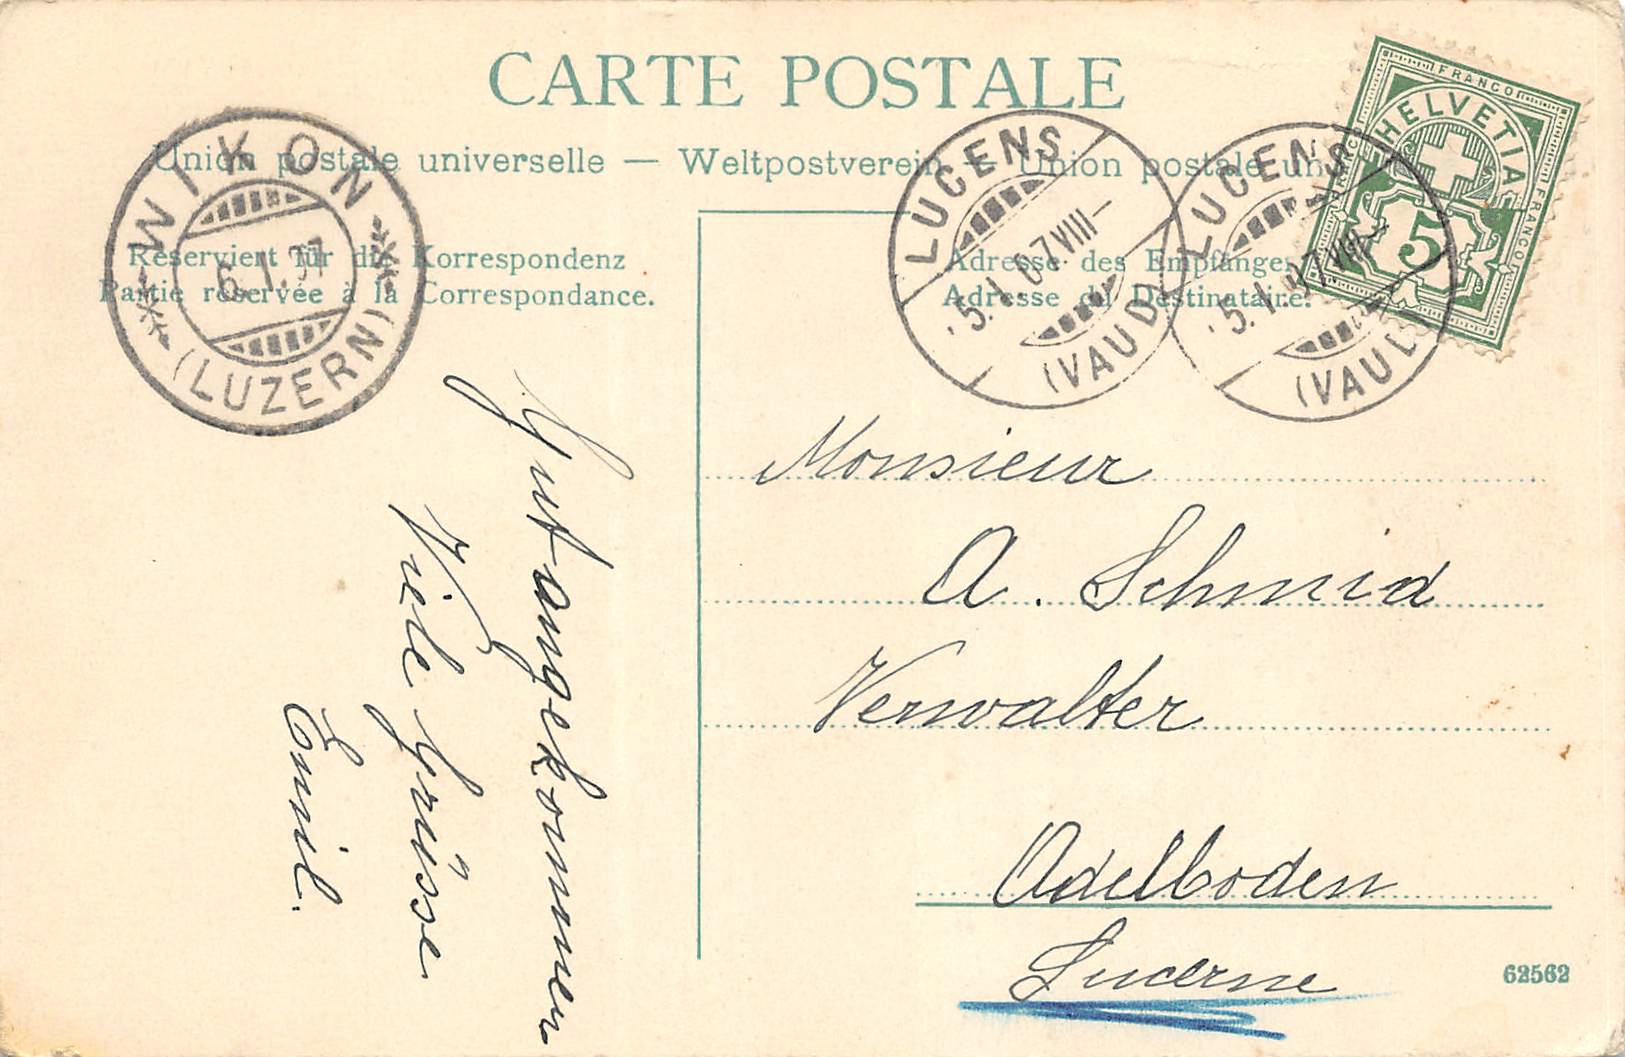 CARTE POSTALE
Union postale universelle — Weltpostverein — Union postale un
Reserviert für die Korrespondenz
Partie réservée à la Correspondance.
Adresse des Empfängers
Adresse du Destinataire.
WIKON
6.I.07
(LUZERN)
LUCENS
5.I.07.VIII—
(VAUD)
LUCENS
5.I.07.VIII—
(VAUD)
FRANCO
HELVETIA
FRANCO
FRANCO
5
Gut angekommen
Viele Grüsse
Emil.
Monsieur
A. Schmid
Verwalter
Adelboden
Lucerne
62562